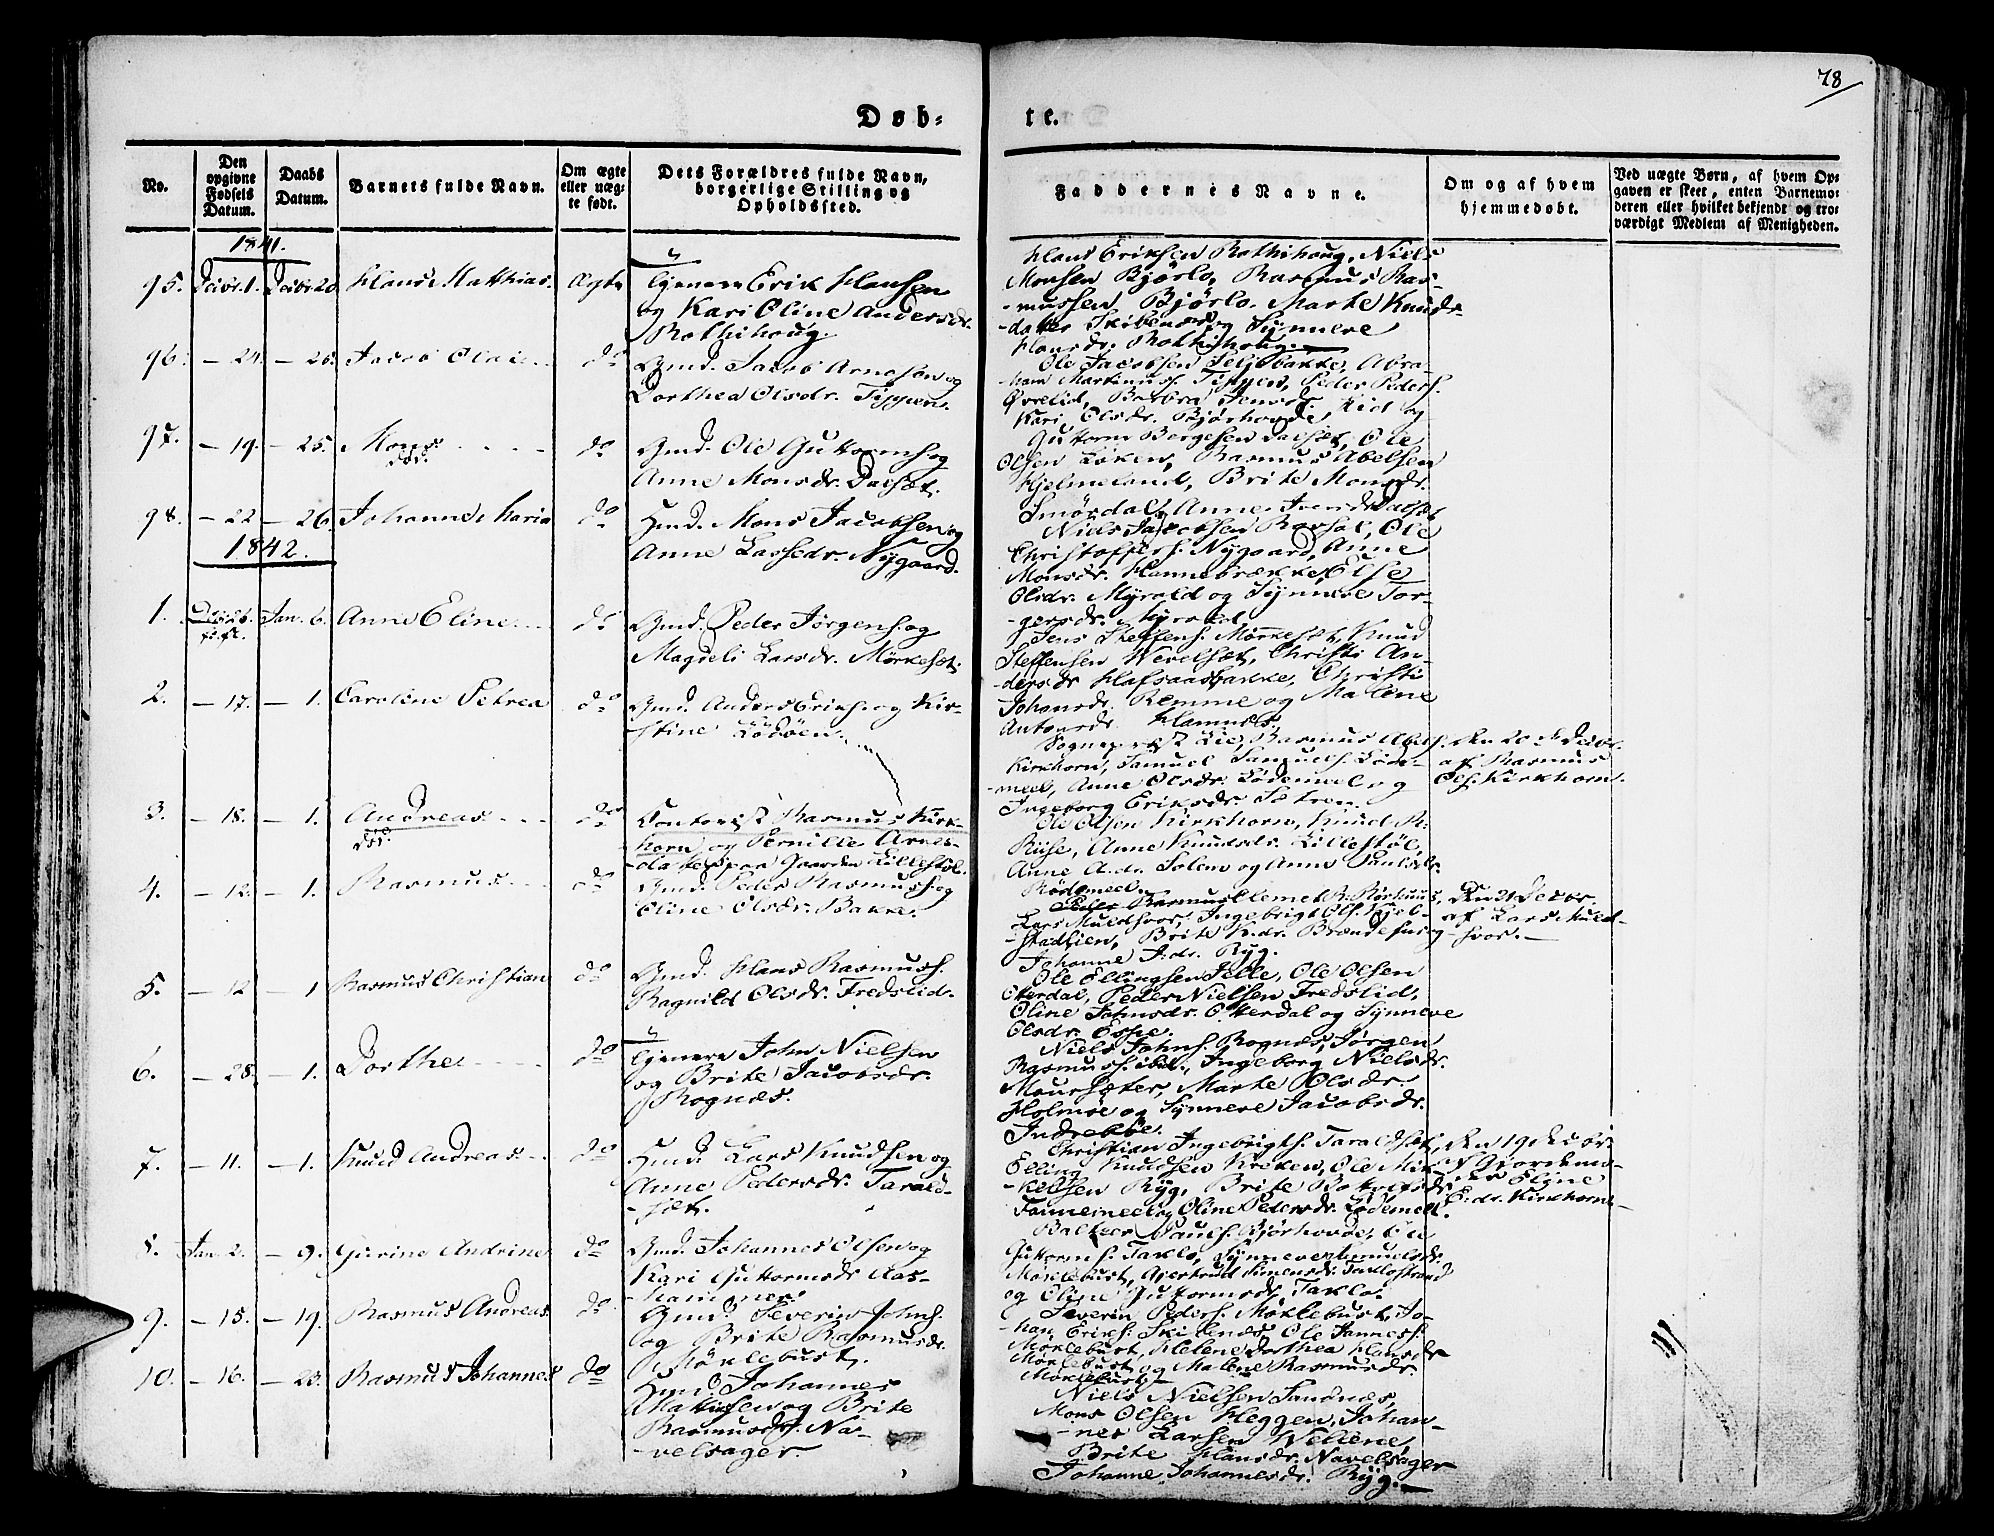 78
Døb-
te.
No.
Den
opgivne
Fødsels
Datum.
Daabs
Datum.
Barnets fulde Navn.
Om ægte
eller uæg-
te født.
Dets Forældres fulde Navn,
borgerlige Stilling og
Opholdssted.
Faddernes Navne.
Om og af hvem
hjemmedøbt.
Ved uægte Børn, af hvem Op-
gaven er skeet, enten Barnemo-
deren eller hvilket bekjendt og tro-
værdigt Medlem af Menigheden.
1841.
95. Decbr. 1. Decbr. 26 Hans Matthias. Ægte
Erik Hansen
og Kari Oline Andersdr.
Rothihoug
Hans Eriksen Rothihoug, Niels
Monsen Bjørlo, Rasmus Ras-
mussen Bjørlo, Marte Knuds-
datter Skibenæs og Synneve
Hansdr. Rothihoug.
96. - 24. - 26. Jacob Olai do
Gmd. Jacob Arnesen og
Dorthea Olsdr. Tippen.
Ole Jacobsen Seljebakke, Abra-
ham Martinuss. Tippen, Peder Peders.
Øvrelid, Barbra Jensdr.
Kari Olsdr. Bjørhovde, Lid og
97. - 19. - 25. Mons do
død.
Gmd. Ole Guttorms. og
Anne Monsdr. Dalsæt.
Guttorm Børgesen Dalsæt, Ole
Olsen Løken, Rasmus Abelsen
Hjelmeland, Brite Monsdr.
Smørdal, Anne Iversdr. Dalsæt
98. - 22 - 26 Johanne Maria do
Hmd. Mons Jacobsen og
Anne Lassedr. Nygaard.
Niels Jacobsen Ole
Christoffers. Nygaard, Anne
Monsdr. Hannebrække, Else
Olsdr. Myrold og Synneve Tor-
gersdr. Myrold.
1842.
1. Jan. 6. Anne Eline do
Gmd. Peder Jørgens. og
Magdeli Larsdr. Mørkesæt.
Jens Steffens. Mørkesæt, Knud
Steffensen Wevelsæt, Christi An-
dersdr Hafsaasbakke, Christi
Johansdr. Remme og Malene
Antonsdr. Hamnes.
2. - 17. - 1. Caroline Petrea do
Gmd. Anders Eriks. og Kir-
stine Lødøen.
Sognepræst Lie, Rasmus Abels.
Kirkhorn, Samuel Samuels. Løde-
meel, Anne Olsdr. Lødemeel og
Ingeborg Eriksdr. Sætren.
Den 20de Decbr.
af Rasmus
Ols. Kirkhorn.
3. - 18. - 1. Andreas do
død.
Contorist Rasmus Kirk-
horn og Pernille Arnes-
datter paa Gaarden Lillestøl.
Ole Olsen Kirkhorn, Knud R.
Riise, Anne Knudsdr. Lillestøl,
Anne A.dr. Solem og Anne Paulsdr.
Rødemeel.
4. - 12. - 1. Rasmus do
Gmd. Peder Rasmuss. og
Eline Olsdr. Bakke.
Peder Rasmus Clemet R. Børhuus,
Lars Muldsvor, Ingebrigt Ols. Kjel-
stadlien, Brite K.dr. Brændehaug
Johanne J.dr. Ryg.
Den 21 Decbr.
af Lars Muld-
svor.
5. - 12 - 1 Rasmus Christian do
Gmd. Hans Rasmuss.
Ragnild Olsdr. Fredslid.
Ole Ellingsen Jelle, Ole Olsen
Otterdal, Peder Nielsen Fredslid,
Oline Johnsdr. Otterdal og Synneve
Olsdr. Espe.
6. - 28. - 1. Dorthe do
John Nielsen
og Brite Jacobsdr.
Rognæs.
Niels Johns. Rognæs, Jørgen
Rasmuss. ibd., Ingeborg Nielsdr.
Maursæter, Marte Olsdr.
Holmøe og Synneve Jacobsdr.
Indrebøe.
7. - 11. - 1. Knud Andreas do
Hmd. Lars Knudsen og
Anne Pedersdr. Tarald-
sæt.
Christian Ingebrigts. Taraldsæt,
Elling Knudsen Kreken, Ole Mik-
kelsen Ryg, Brite
Tannemeel og Oline Pedersdr. Lødemeel.
Den 19 Decbr.
af Gjordemo-
Eline
E.dr. Kirkhorn
8. Jan. 2. - 9. Gurine Andrine do
Gmd. Johannes Olsen og
Kari Guttormsdr Aas-
hammer
Baltzer Pauls. Bjørhovde, Ole
Guttorms. Taklo, Synneve Samuelsdr.
Møklebust, Gjertrud Simensdr. Taklostrand
og Oline Guttormsdr. Taklo.
9. - 15. - 19. Rasmus Andreas do
Gmd. Severin Johns.
og Brite Rasmusdr.
Møklebust.
Severin Peders. Møklebust, Jo-
han Eriks. Skibenæs, Ole Janness.
Møklebust, Helene Dorthea Hansdr
Møklebust og Malene Rasmusdr.
Møklebust
10. - 16. - 23. Rasmus Johannes do
Hmd. Johannes
Mathisen og Brite
Rasmusdr. Na-
velsager.
Niels Nielsen Sandnæs,
Mons Olsen Heggen, Johan-
nes Larsen Wellene
Brite Hansdr. Navelsager
Johanne Johannesdr. Ryg.